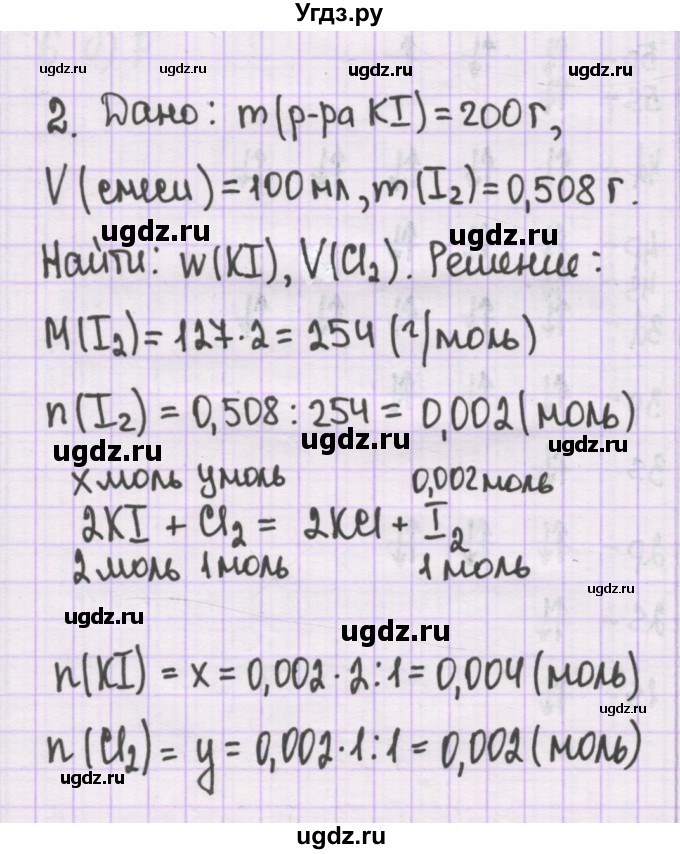 Угдз.ру
ugdz.ru ugdz.ru ugdz.ru
2. Дано: m(р-ра KI)=200г,
V(смеси)=100мл, m(I₂)=0,508 г.
ugdz.ru ugdz.ru
Найти: w(KI), V(Cl₂). Решение:
M(I₂)=127·2=254 (г/моль)
n(I₂)=0,508:254=0,002(моль)
ugdz.ru ugdz.ru ugdz.ru
x моль y моль 0,002 моль
2KI + Cl₂ = 2KCl + I₂
2 моль 1 моль 1 моль
ugdz.ru
ugdz.ru ugdz.ru
n(KI)=x=0,002·2:1=0,004(моль)
ugdz.ru
n(Cl₂)=y=0,002·1:1=0,002(моль)
ugdz.ru ugdz.ru
ugdz.ru